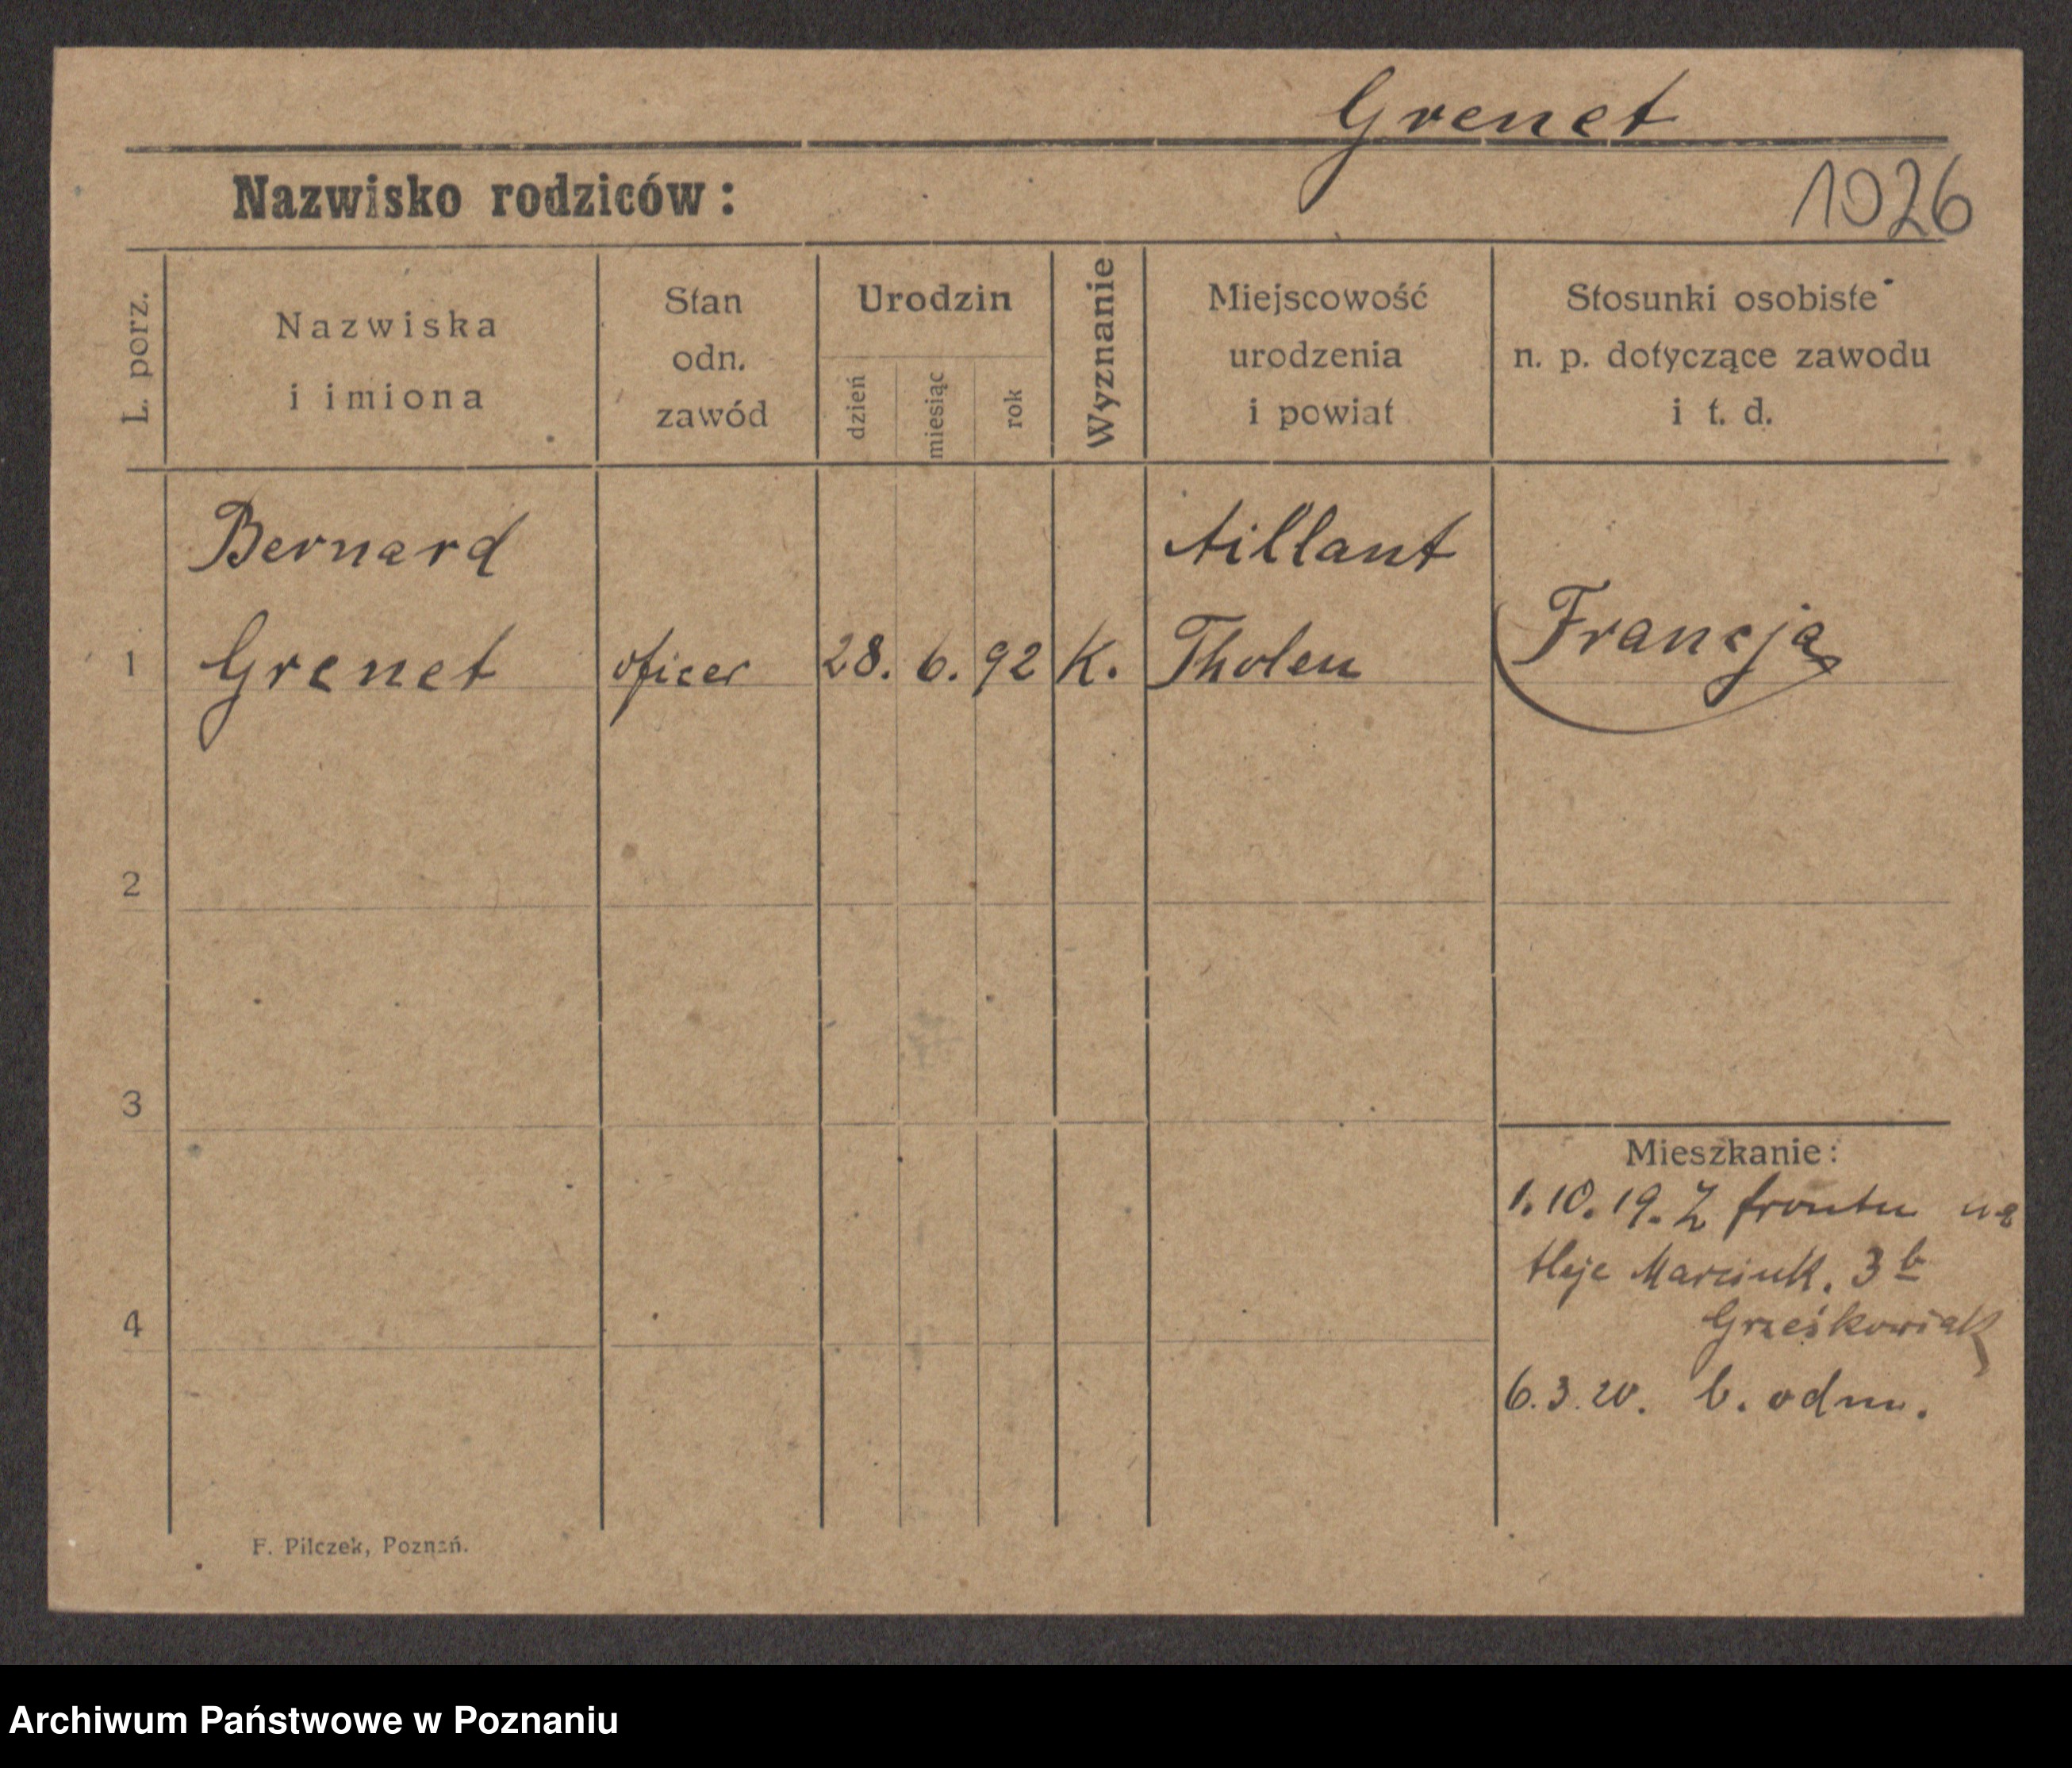 Grenet
Nazwisko rodziców:
1026
L. porz.
Nazwiska
i imiona
Stan
odn.
zawód
Urodzin
dzień
miesiąc
rok
Wyznanie
Miejscowość
urodzenia
i powiat
Stosunki osobiste
n. p. dotyczące zawodu
i t. d.
1
Bernard
Grenet
oficer
28. 6. 92
K.
Aillant
Tholen
Francja
2
3
4
Mieszkanie:
1.10.19. Z frontu na
Aleje Marcink. 3 b
Grześkowiak
6.3.20. b. odm.
F. Pilczek, Poznań.
Archiwum Państwowe w Poznaniu